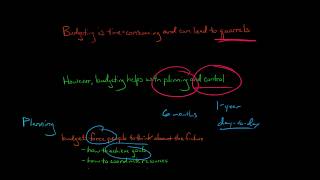 Budgeting is time-consuming and can lead to quarrels
However, budgeting helps with planning and control
6 months
1-year
day-to-day
Planning
budgets force people to think about the future
- how to achieve goals
- how to coordinate resources